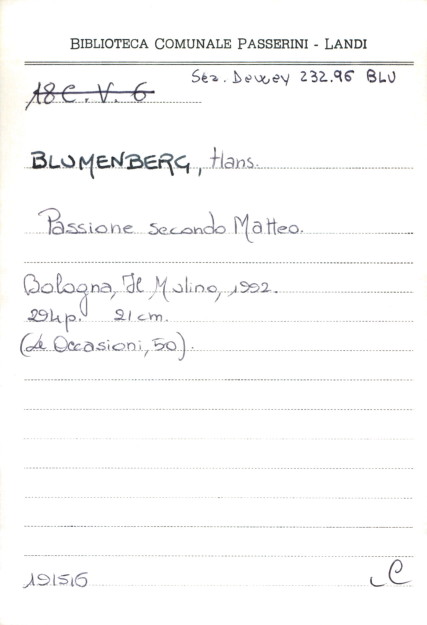 BIBLIOTECA COMUNALE PASSERINI - LANDI
Sez. Dewey 232.96 BLU
18 C. V. 6
BLUMENBERG, Hans.
Passione secondo Matteo.
Bologna, Il Mulino, 1992.
294 p. 21 cm.
(Le Occasioni, 50).
191516
C